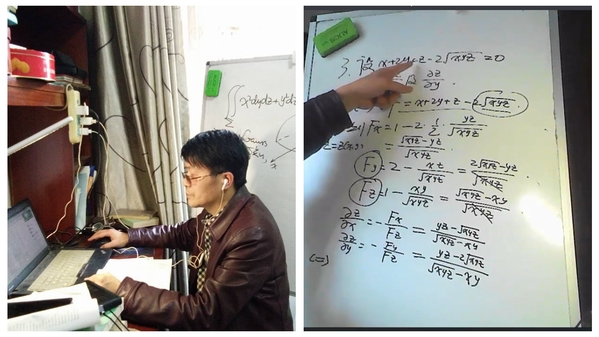 ∬ x²dydz+y²dz
Gauss
3. 设 x+2y+z-2√xyz=0
∂z/∂y.
= x+2y+z-2√xyz.
Fx=1-2·1/2·yz/√xyz
=(√xyz-yz)/√xyz
Fy=2-xz/√xyz=(2√xyz-yz)/√xyz
Fz=1-xy/√xyz=(√xyz-xy)/√xyz
∂z/∂x=-Fx/Fz=(yz-√xyz)/(√xyz-xy)
∂z/∂y=-Fy/Fz=(yz-2√xyz)/(√xyz-xy)